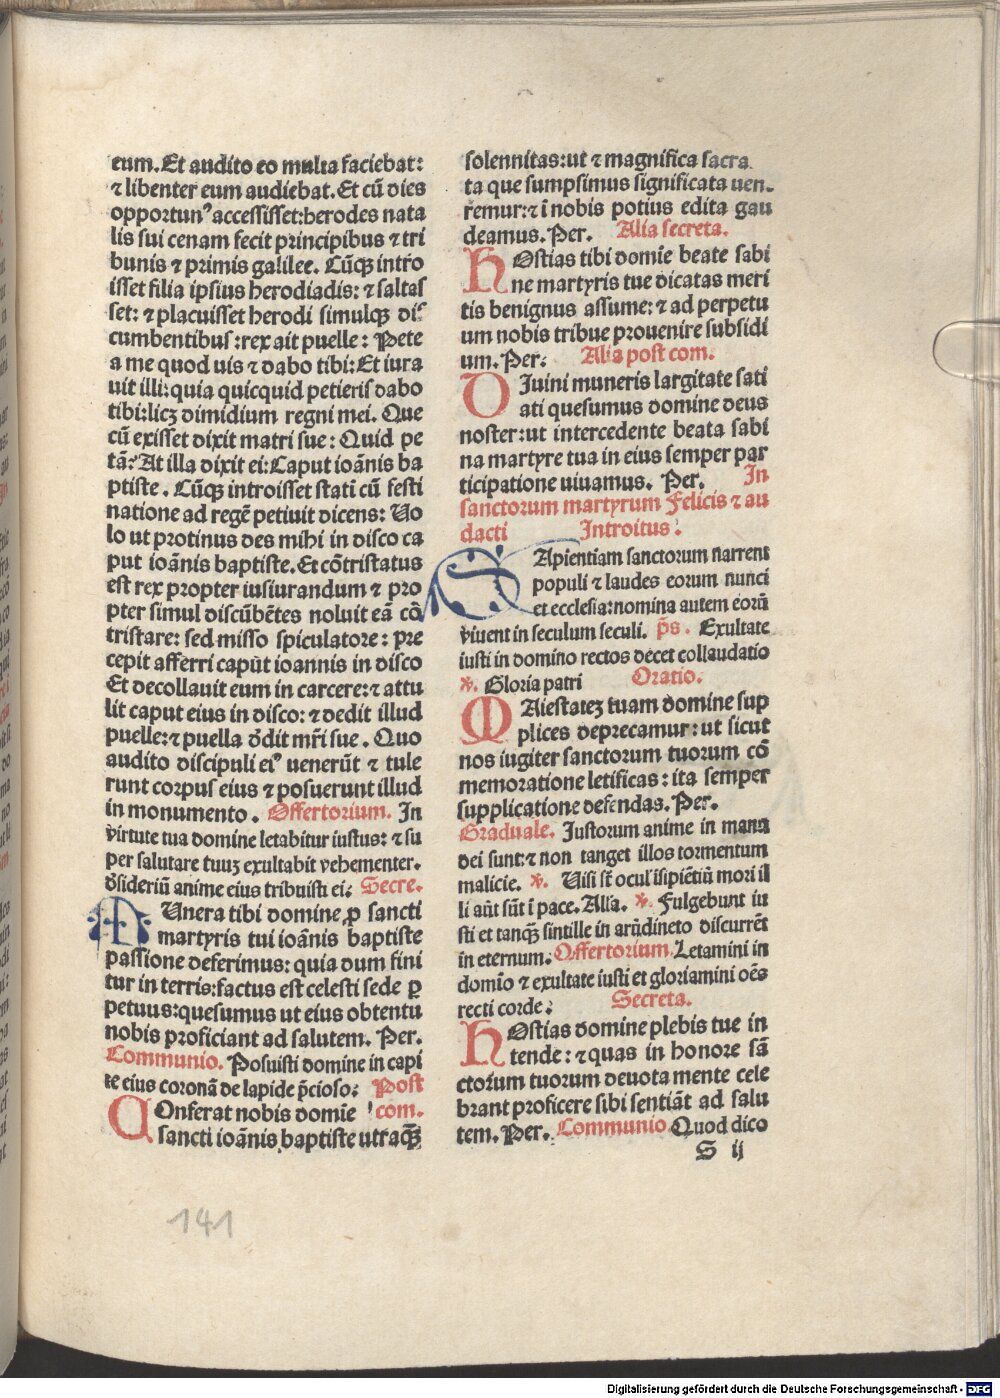 eum. Et audito eo multa faciebat:
⁊ libenter eum audiebat. Et cū dies
opportunꝰ accessisset: herodes nata
lis sui cenam fecit principibus ⁊ tri
bunis ⁊ primis galilee. Cūqꝫ intro
isset filia ipsius herodiadis: ⁊ saltas
set: ⁊ placuisset herodi simulqꝫ dis
cumbentibus: rex ait puelle: Pete
a me quod uis ⁊ dabo tibi: Et iura
uit illi: quia quicquid petieris dabo
tibi: licꝫ dimidium regni mei. Que
cū exisset dixit matri sue: Quid pe
tā? At illa dixit ei: Caput ioānis ba
ptiste. Cūqꝫ introisset statī cū festi
natione ad regē petiuit dicens: Uo
lo ut protinus des mihi in disco ca
put ioānis baptiste. Et cōtristatus
est rex propter iusiurandum ⁊ pro
pter simul discūbētes noluit eā cō
tristare: sed misso spiculatore: pre
cepit afferri caput ioannis in disco
Et decollauit eum in carcere: ⁊ attu
lit caput eius in disco: ⁊ dedit illud
puelle: ⁊ puella ōdit mr̄i sue. Quo
audito discipuli eiꝰ uenerūt ⁊ tule
runt corpus eius ⁊ posuerunt illud
in monumento. Offertorium. In
virtute tua domine letabitur iustus: ⁊ su
per salutare tuuꝫ exultabit vehementer.
ōsideriū anime eius tribuisti ei: Secre.
MUnera tibi domine ꝑ sancti
martyris tui ioānis baptiste
passione deferimus: quia dum fini
tur in terris: factus est celesti sede ꝑ
petuus: quesumus ut eius obtentu
nobis proficiant ad salutem. Per.
Communio. Posuisti domine in capi
te eius coronā de lapide p̄cioso: Post
COnferat nobis domīe com.
sancti ioānis baptiste utraqꝫ
solennitas: ut ⁊ magnifica sacra
ta que sumpsimus significata uen
remur: ⁊ ī nobis potius edita gau
deamus. Per. Alia secreta.
HOstias tibi domīe beate sabi
ne martyris tue dicatas meri
tis benignus assume: ⁊ ad perpetu
um nobis tribue prouenire subsidi
um. Per: Alia post com.
DIuini muneris largitate sati
ati quesumus domine deus
noster: ut intercedente beata sabi
na martyre tua in eius semper par
ticipatione uiuamus. Per. In
sanctorum martyrum Felicis ⁊ au
dacti Introitus:
SApientiam sanctorum narrent
populi ⁊ laudes eorum nunci
et ecclesia: nomina autem eorū
viuent in seculum seculi. p̄s. Exultate
iusti in domino rectos decet collaudatio
℣. Gloria patri Oratio.
MAiestateꝫ tuam domine sup
plices deprecamur: ut sicut
nos iugiter sanctorum tuorum cō
memoratione letificas: ita semper
supplicatione defendas. Per.
Graduale. Justorum anime in manu
dei sunt: ⁊ non tanget illos tormentum
malicie. ℣. Uisi st̄ oculˀ īsipiētiū mori il
li aūt sūt ī pace. Alla. ℣. Fulgebunt iu
sti et tanqꝫ sintille in arūdineto discurrēt
in eternum: Offertorium. Letamini in
domīo ⁊ exultate iusti et gloriamini oēs
recti corde: Secreta.
HOstias domine plebis tue in
tende: ⁊ quas in honore sā
ctorum tuorum deuota mente cele
brant proficere sibi sentiāt ad salu
tem. Per. Communio Quod dico
S ij
141
Digitalisierung gefördert durch die Deutsche Forschungsgemeinschaft - DFG